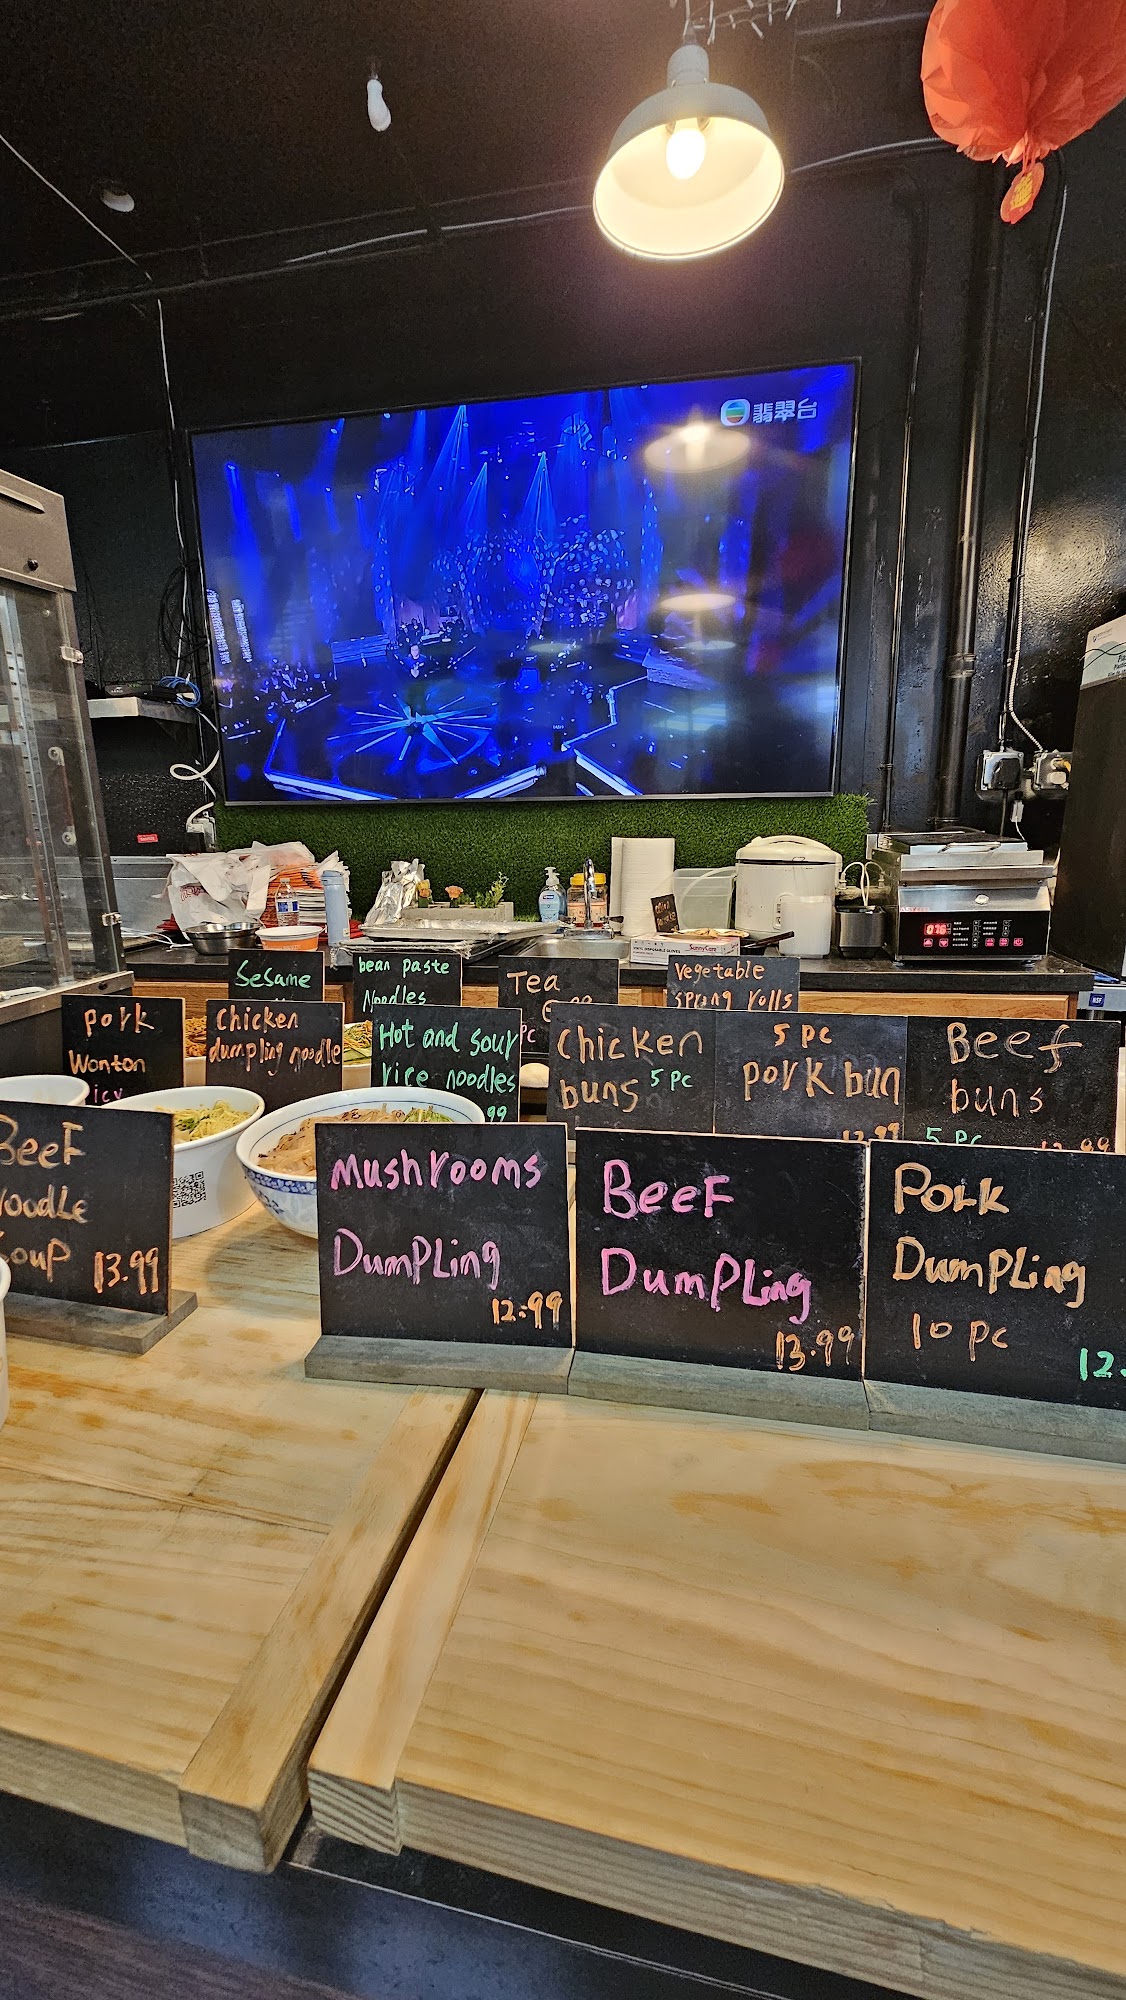 翡翠台
Sesame
bean paste
Noodles
Tea
vegetable
spring rolls
pork
Wonton
Chicken
dumpling noodle
Hot and sour
rice noodles
99
Chicken
buns 5 pc
5 pc
pork bun
12.99
Beef
buns
5 pc 12.99
Beef
Noodle
Soup 13.99
Mushrooms
Dumpling
12.99
Beef
Dumpling
13.99
Pork
Dumpling
10 pc
12.
SunnyCare